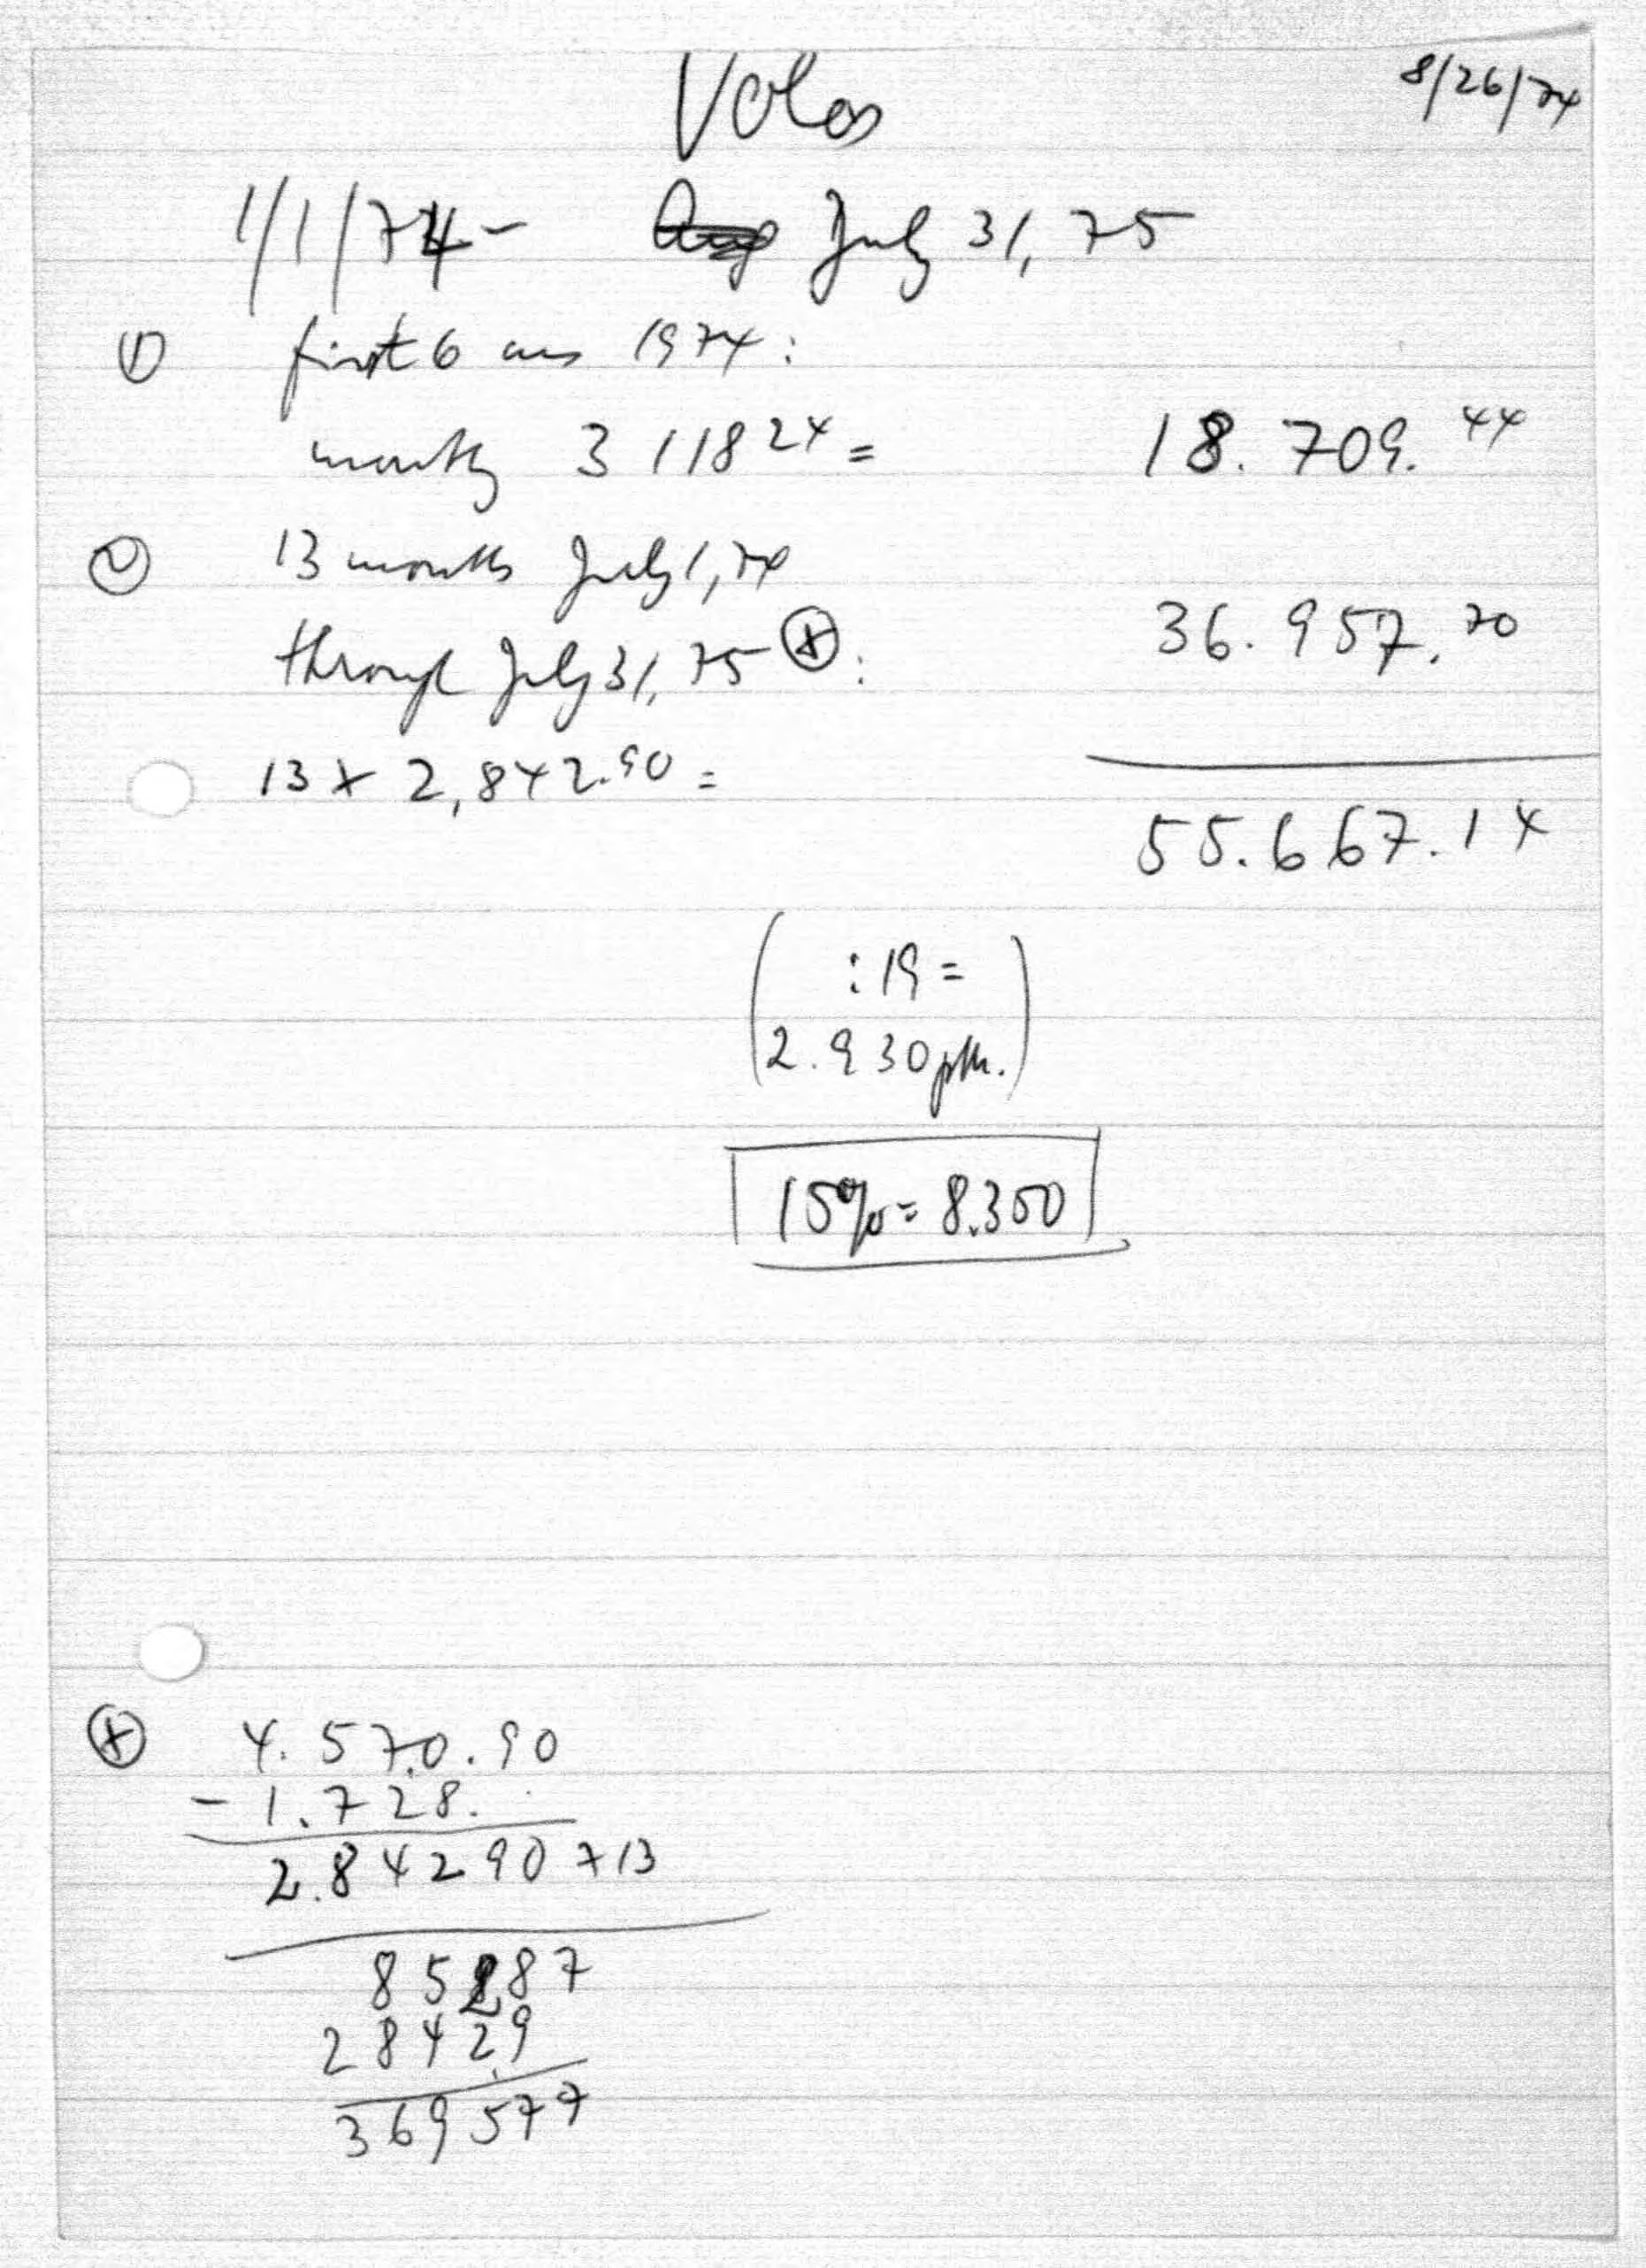 Volos
8/26/74
1/1/74 - Aug July 31, 75
① first 6 ms 1974:
monthly 3 118 24 = 18.709.44
② 13 months July 1, 74
through July 31, 75 ⊗: 36.957.70
13 x 2,842.90 =
55.667.14
( : 19 =
2.930 pm. )
15% = 8.350
⊗ 4.570.90
- 1.728.
2.84290 x 13
85287
28429
369577